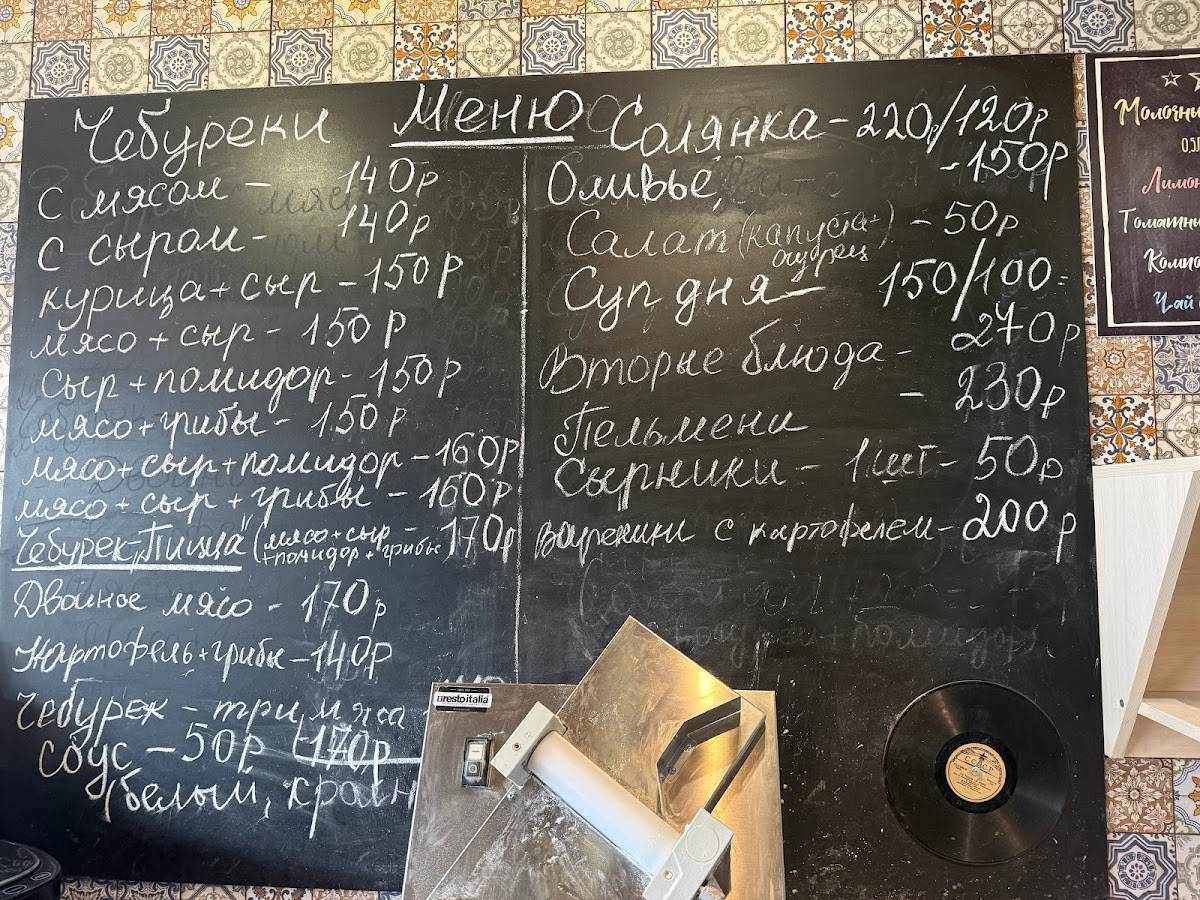 Меню
Чебуреки
С мясом - 140р
С сыром - 140р
курица + сыр - 150р
мясо + сыр - 150р
сыр + помидор - 150р
мясо + грибы - 150р
мясо + сыр + помидор - 160р
мясо + сыр + грибы - 160р
Чебурек „Пицца" (мясо + сыр - 170р
+ помидор + грибы
Двойное мясо - 170р
Картофель + грибы - 140р
Чебурек - три мяса
170р
Соус - 50р
(белый,
Солянка - 220р/120р
Оливье - 150р
Салат (капуста + ) - 50р
огурец
Суп дня - 150/100
Вторые блюда - 270р
Пельмени - 230р
Сырники - 1 шт - 50р
вареники с картофелем - 200р
restoitalia
СССР
0,5
Чай